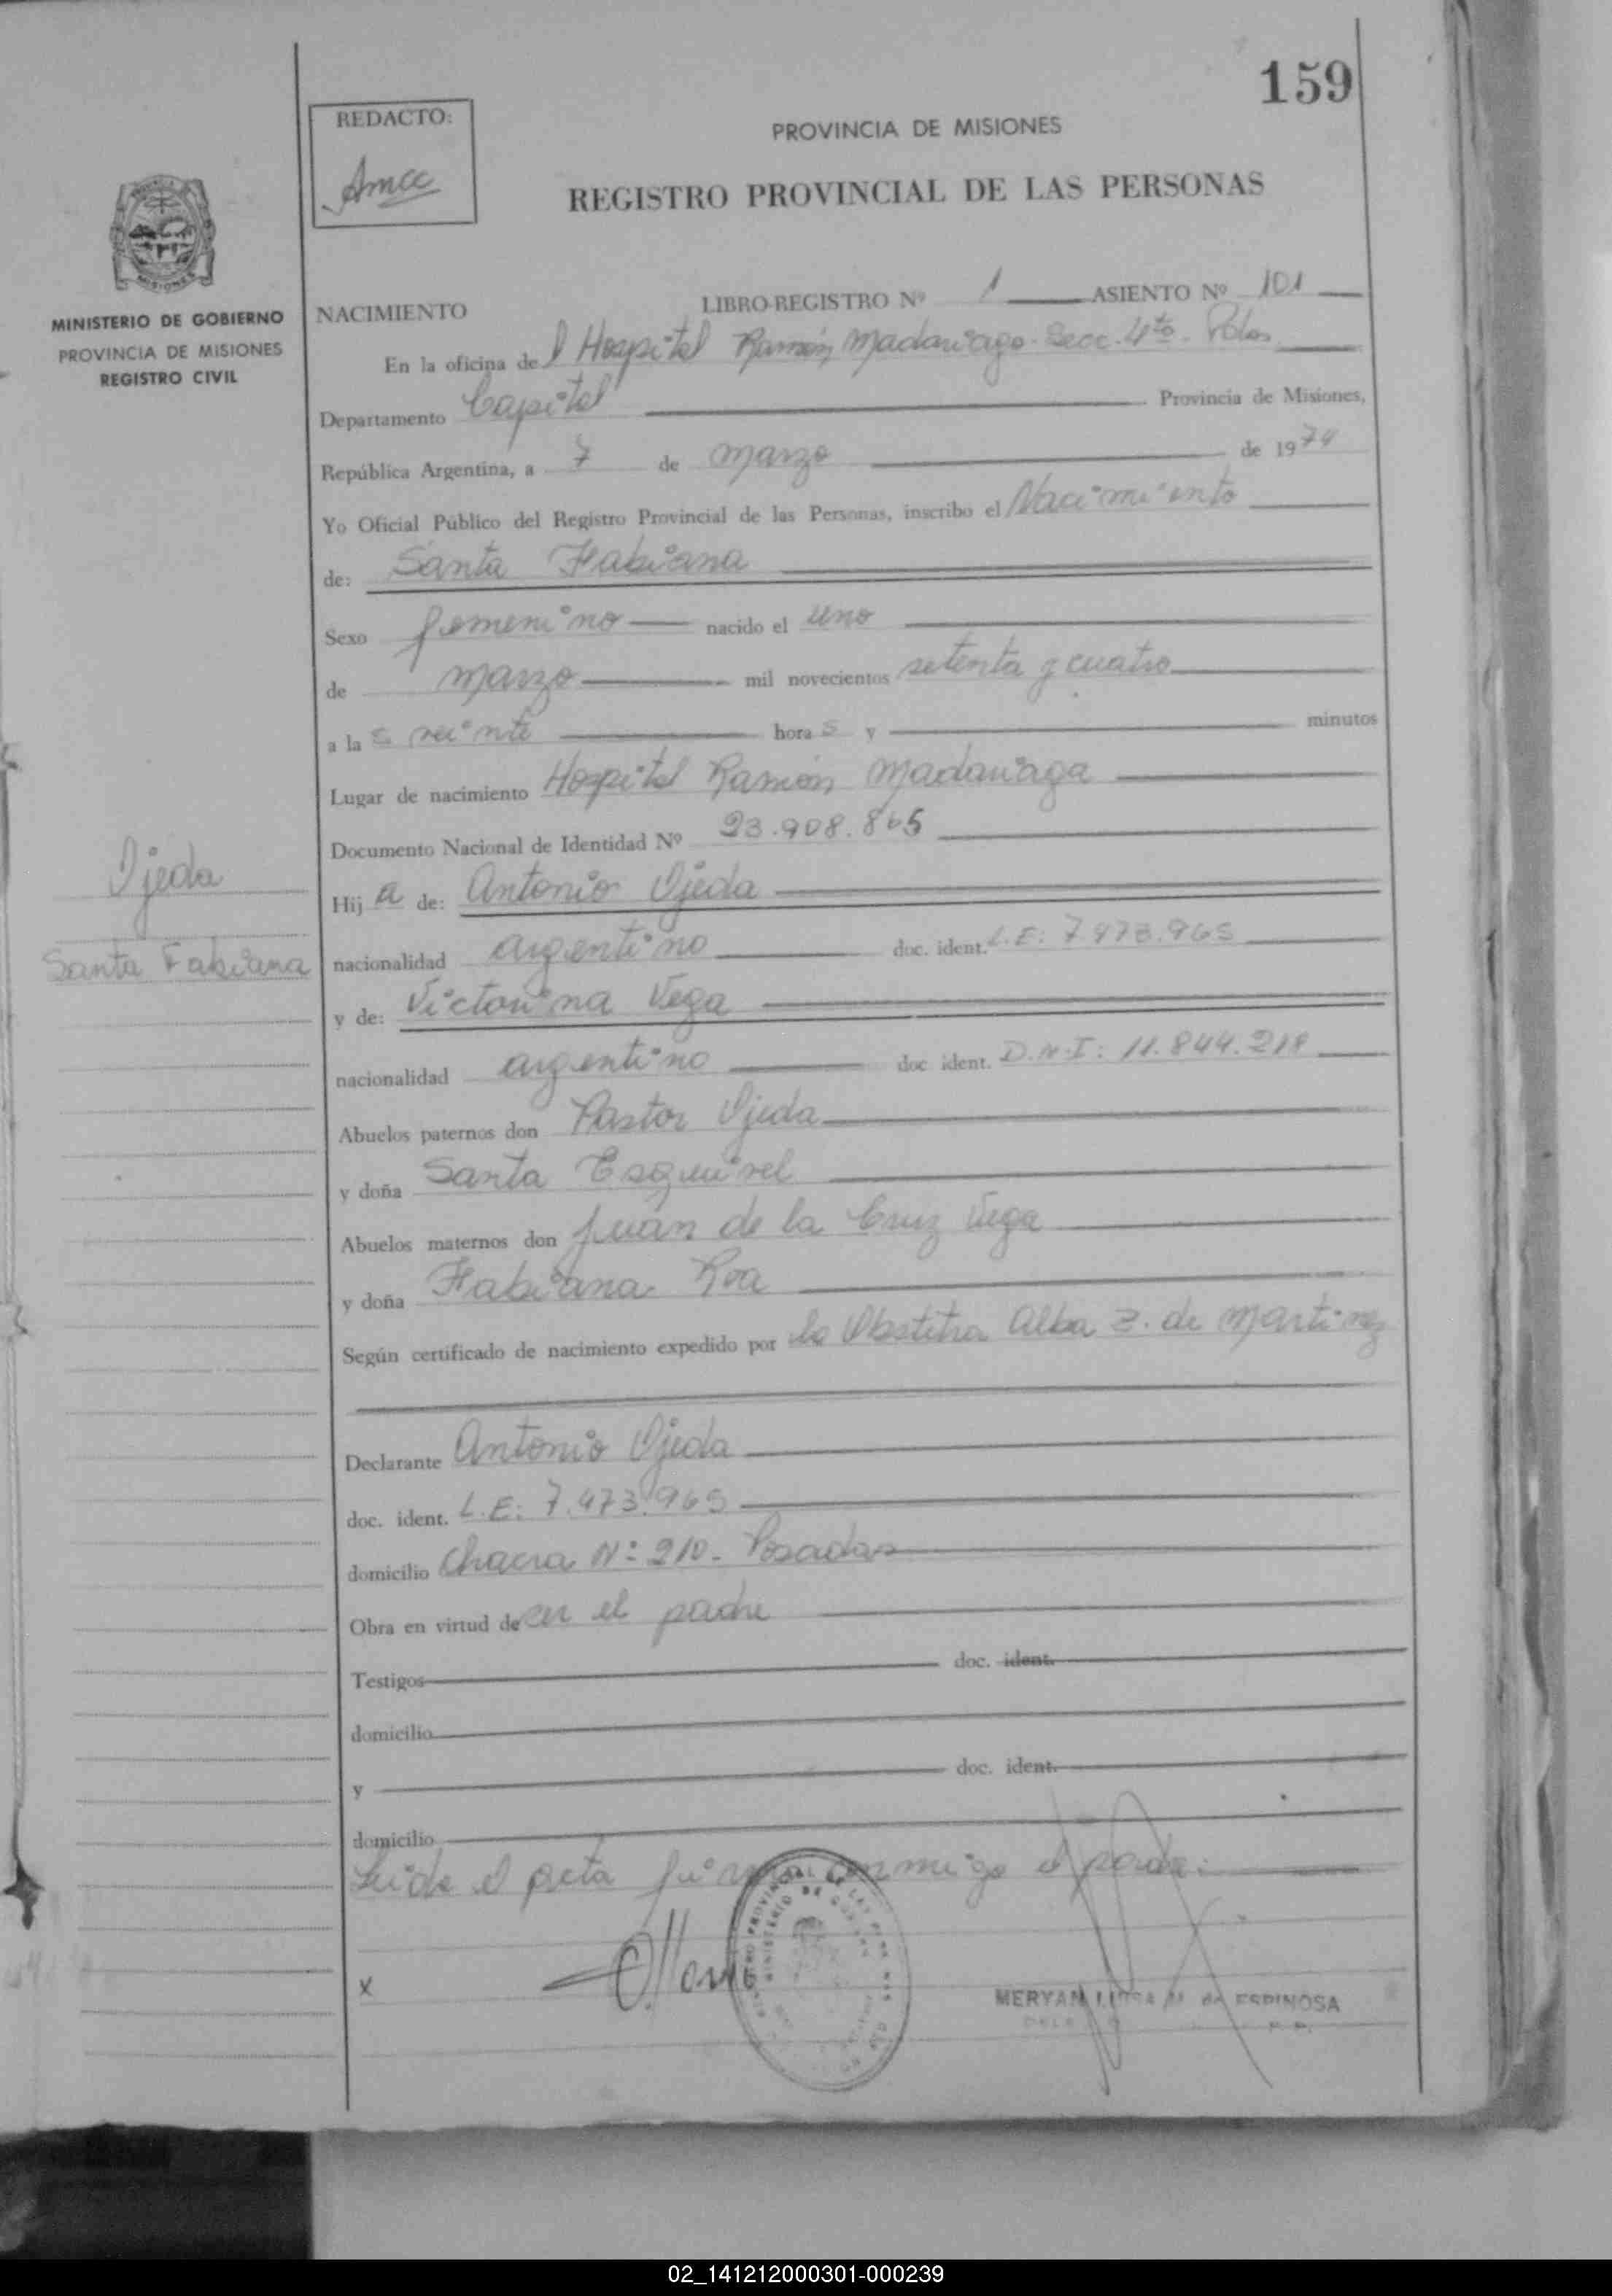 159
REDACTO:
Amcc
PROVINCIA DE MISIONES
REGISTRO PROVINCIAL DE LAS PERSONAS
MINISTERIO DE GOBIERNO
PROVINCIA DE MISIONES
REGISTRO CIVIL
NACIMIENTO LIBRO-REGISTRO Nº 1 ASIENTO Nº 101
En la oficina de l Hospital Ramón Madariaga- Secc. 4ta- Pdas
Departamento Capital Provincia de Misiones,
República Argentina, a 7 de marzo de 1974
Yo Oficial Público del Registro Provincial de las Personas, inscribo el Nacimiento
de: Santa Fabiana
Sexo femenino nacido el uno
de marzo mil novecientos setenta y cuatro
a la s veinte hora s y minutos
Lugar de nacimiento Hospital Ramón Madariaga
Documento Nacional de Identidad Nº 23.908.865
Ojeda
Santa Fabiana
Hij a de: Antonio Ojeda
nacionalidad argentino doc. ident. L.E: 7.473.965
y de: Victorina Vega
nacionalidad argentino doc ident. D.N.I: 11.844.218
Abuelos paternos don Pastor Ojeda
y doña Santa Esquivel
Abuelos maternos don Juan de la Cruz Vega
y doña Fabiana Roa
Según certificado de nacimiento expedido por la Obstetra Alba Z. de Martinez
Declarante Antonio Ojeda
doc. ident. L.E: 7.473.965
domicilio Chacra Nº 210- Posadas
Obra en virtud de ser el padre
Testigos doc. ident.
domicilio
y doc. ident.
domicilio
Leida el acta firma conmigo el padre:
x
MERYAN LUISA M. de ESPINOSA
02_141212000301-000239